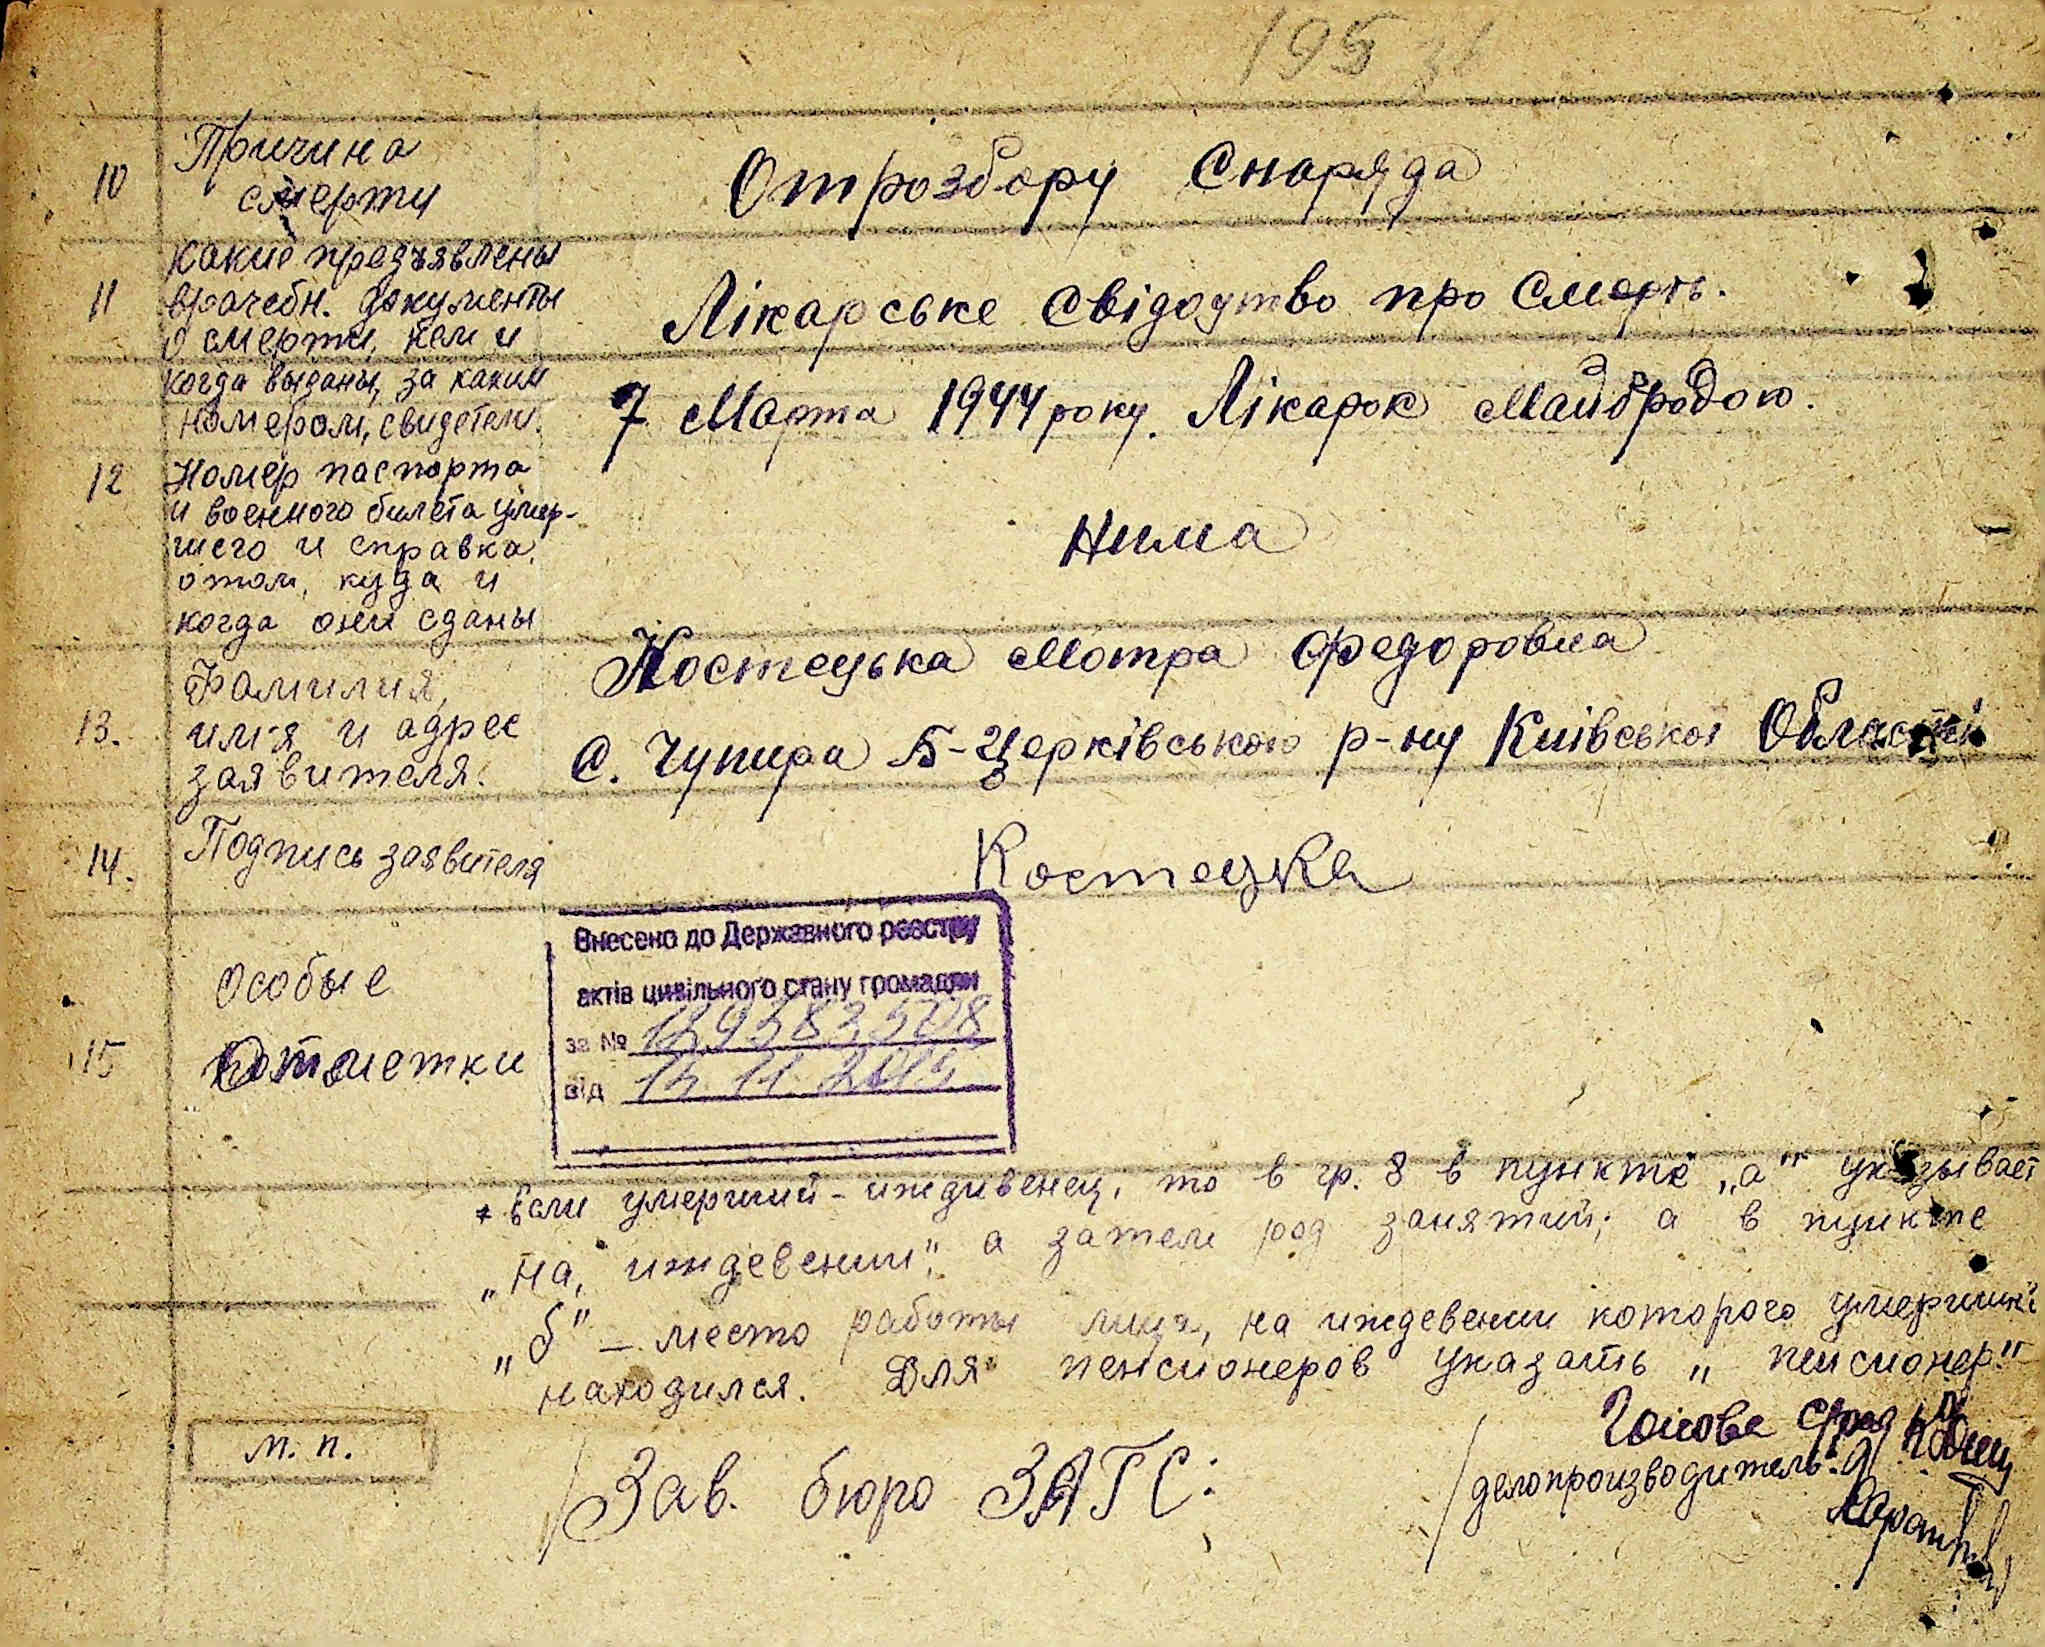 195
10 Причина
смерти
От розбору Снаряда
11 какие предъявлены
врачебн. документы
о смерти, кем и
когда выданы, за каким
номером, свидетели.
Лікарське свідоцтво про Смерть.
7 Марта 1944 року. Лікарок Майбродою.
12 Номер паспорта
и военного билета умер-
шего и справка
о том, куда и
когда они сданы
Нима
13. Фамилия,
имя и адрес
заявителя.
Костецька Мотра Федоровна
С. Чупира Б-Церківського р-ну Київської Області
14. Подпись заявителя
Костецка
15 особые
отметки
Внесено до Державного реєстру
актів цивільного стану громадян
за №
від
* Если умерший - иждивенец, то в гр. 8 в пункте „а" указывает
„на, иждевении", а затем род занятий; а в пункте
„б" – место работы лица, на иждевении которого умерший
находился. Для пенсионеров указать „пенсионер"
м. п.
Зав. бюро ЗАГС:
Голова
делопроизводитель: